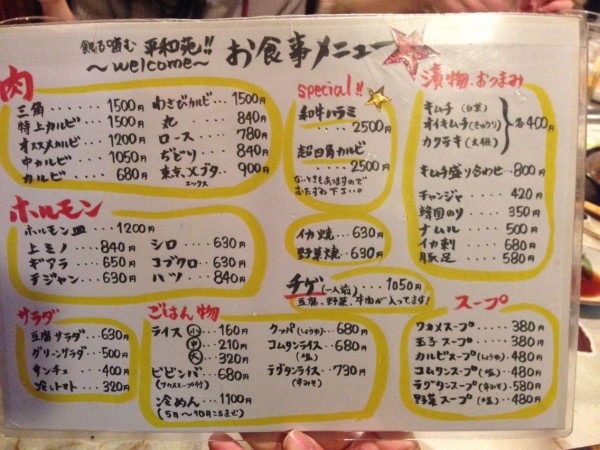 飲る噛む 平和苑!! お食事メニュー
～welcome～
肉
三角 ････ 1500円
特上カルビ ･･ 1500円
オススメカルビ ･･ 1200円
中カルビ ････ 1050円
カルビ ････ 680円
わさびカルビ ･･ 1500円
丸 ･････ 840円
ロース ････ 780円
ぢどり ････ 840円
東京Xブタ ･･ 900円
エックス
special!!
和牛ハラミ
････ 2500円
超四角カルビ
････ 2500円
ないときもありますので
おたずね下さい。
漬物、おつまみ
キムチ (白菜)
オイキムチ(きゅうり)
カクテキ (大根)
各400円
キムチ盛り合わせ ･･ 800円
チャンジャ ････ 420円
韓国のり ････ 350円
ナムル ････ 500円
イカ刺 ････ 680円
豚足 ････ 580円
ホルモン
ホルモン皿 ･･･ 1200円
上ミノ ････ 840円
ギアラ ････ 650円
テジャン ････ 630円
シロ ････ 630円
コブクロ ･･ 630円
ハツ ････ 840円
イカ焼 ････ 630円
野菜焼 ･･･ 630円
チゲ(一人前) ････ 1050円
豆腐、野菜、牛肉が入ってます!
サラダ
豆腐サラダ ･･ 630円
グリーンサラダ ･･ 500円
サンチュ ･･･ 400円
冷しトマト ･･ 320円
ごはん物
ライス 小 ･･ 160円
中 ･･ 210円
大 ･･ 320円
ビビンバ ･･ 680円
(ワカメスープ付)
冷めん ･･･ 1100円
(5月～10月ころまで)
クッパ(しょうゆ) ･･ 680円
コムタンライス ･･ 680円
(塩)
テグタンライス ･･ 730円
(辛みそ)
スープ
ワカメスープ ････ 380円
玉子スープ ････ 380円
カルビスープ(しょうゆ) ･･ 480円
コムタンスープ(塩) ･･ 480円
テグタンスープ(辛みそ) ･･ 580円
野菜スープ (塩) ･･ 480円